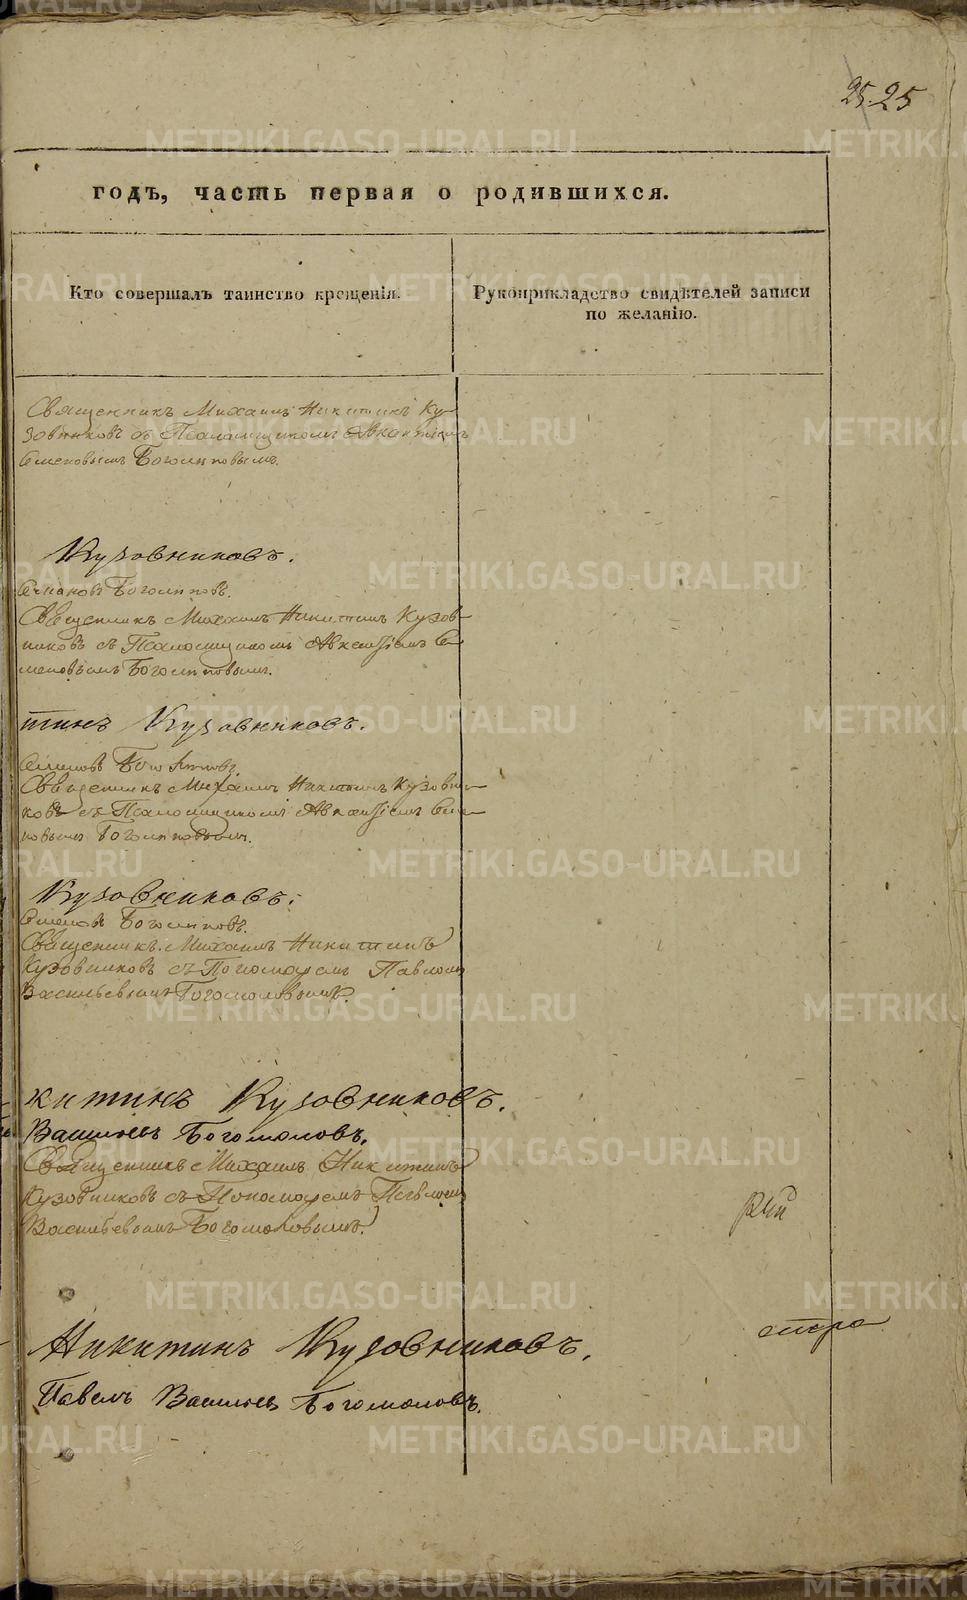 25. 25
годъ, часть первая о родившихся.
Кто совершалъ таинство крещенія.
Рукоприкладство свидѣтелей записи
по желанію.
Священникъ Михаилъ Никитинъ Ку-
зовниковъ съ Псаломщикомъ
Семеновымъ Боголѣповымъ.
Кузовниковъ.
Семеновъ Боголѣповъ.
Священникъ Михаилъ Никитинъ Кузов-
никовъ съ Псаломщикомъ Авксентіемъ Се-
меновымъ Боголѣповымъ.
тинъ Кузовниковъ.
Семеновъ Боголѣповъ.
Священникъ Михаилъ Никитинъ Кузовни-
ковъ съ Псаломщикомъ Авксентіемъ Семе-
новымъ Боголѣповымъ.
Кузовниковъ.
Семеновъ Боголѣповъ.
Священникъ Михаилъ Никитинъ
Кузовниковъ съ Пономаремъ Павломъ
Васильевымъ Богомоловымъ.
китинъ Кузовниковъ.
Васильевъ Богомоловъ.
Священникъ Михаилъ Никитинъ
Кузовниковъ съ Пономаремъ Павломъ
Васильевымъ Богомоловымъ.
Никитинъ Кузовниковъ.
Павелъ Васильевъ Богомоловъ.
METRIKI.GASO-URAL.RU